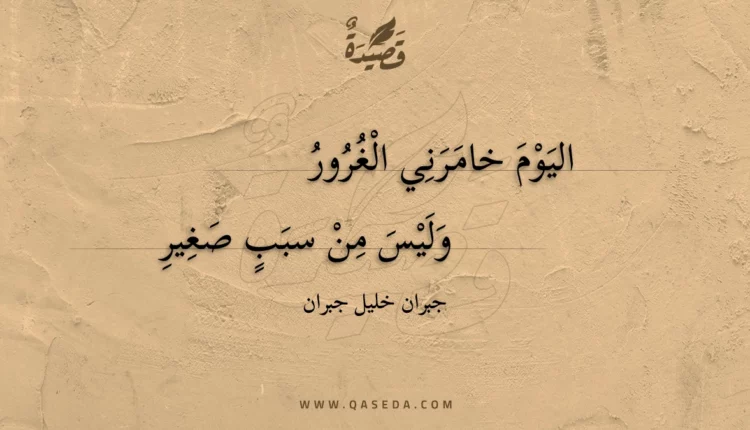 قَصِيدَةٌ
اليَوْمَ خامَرَنِي الْغُرُورُ
وَلَيْسَ مِنْ سبَبٍ صَغِيرِ
جبران خليل جبران
WWW.QASEDA.COM